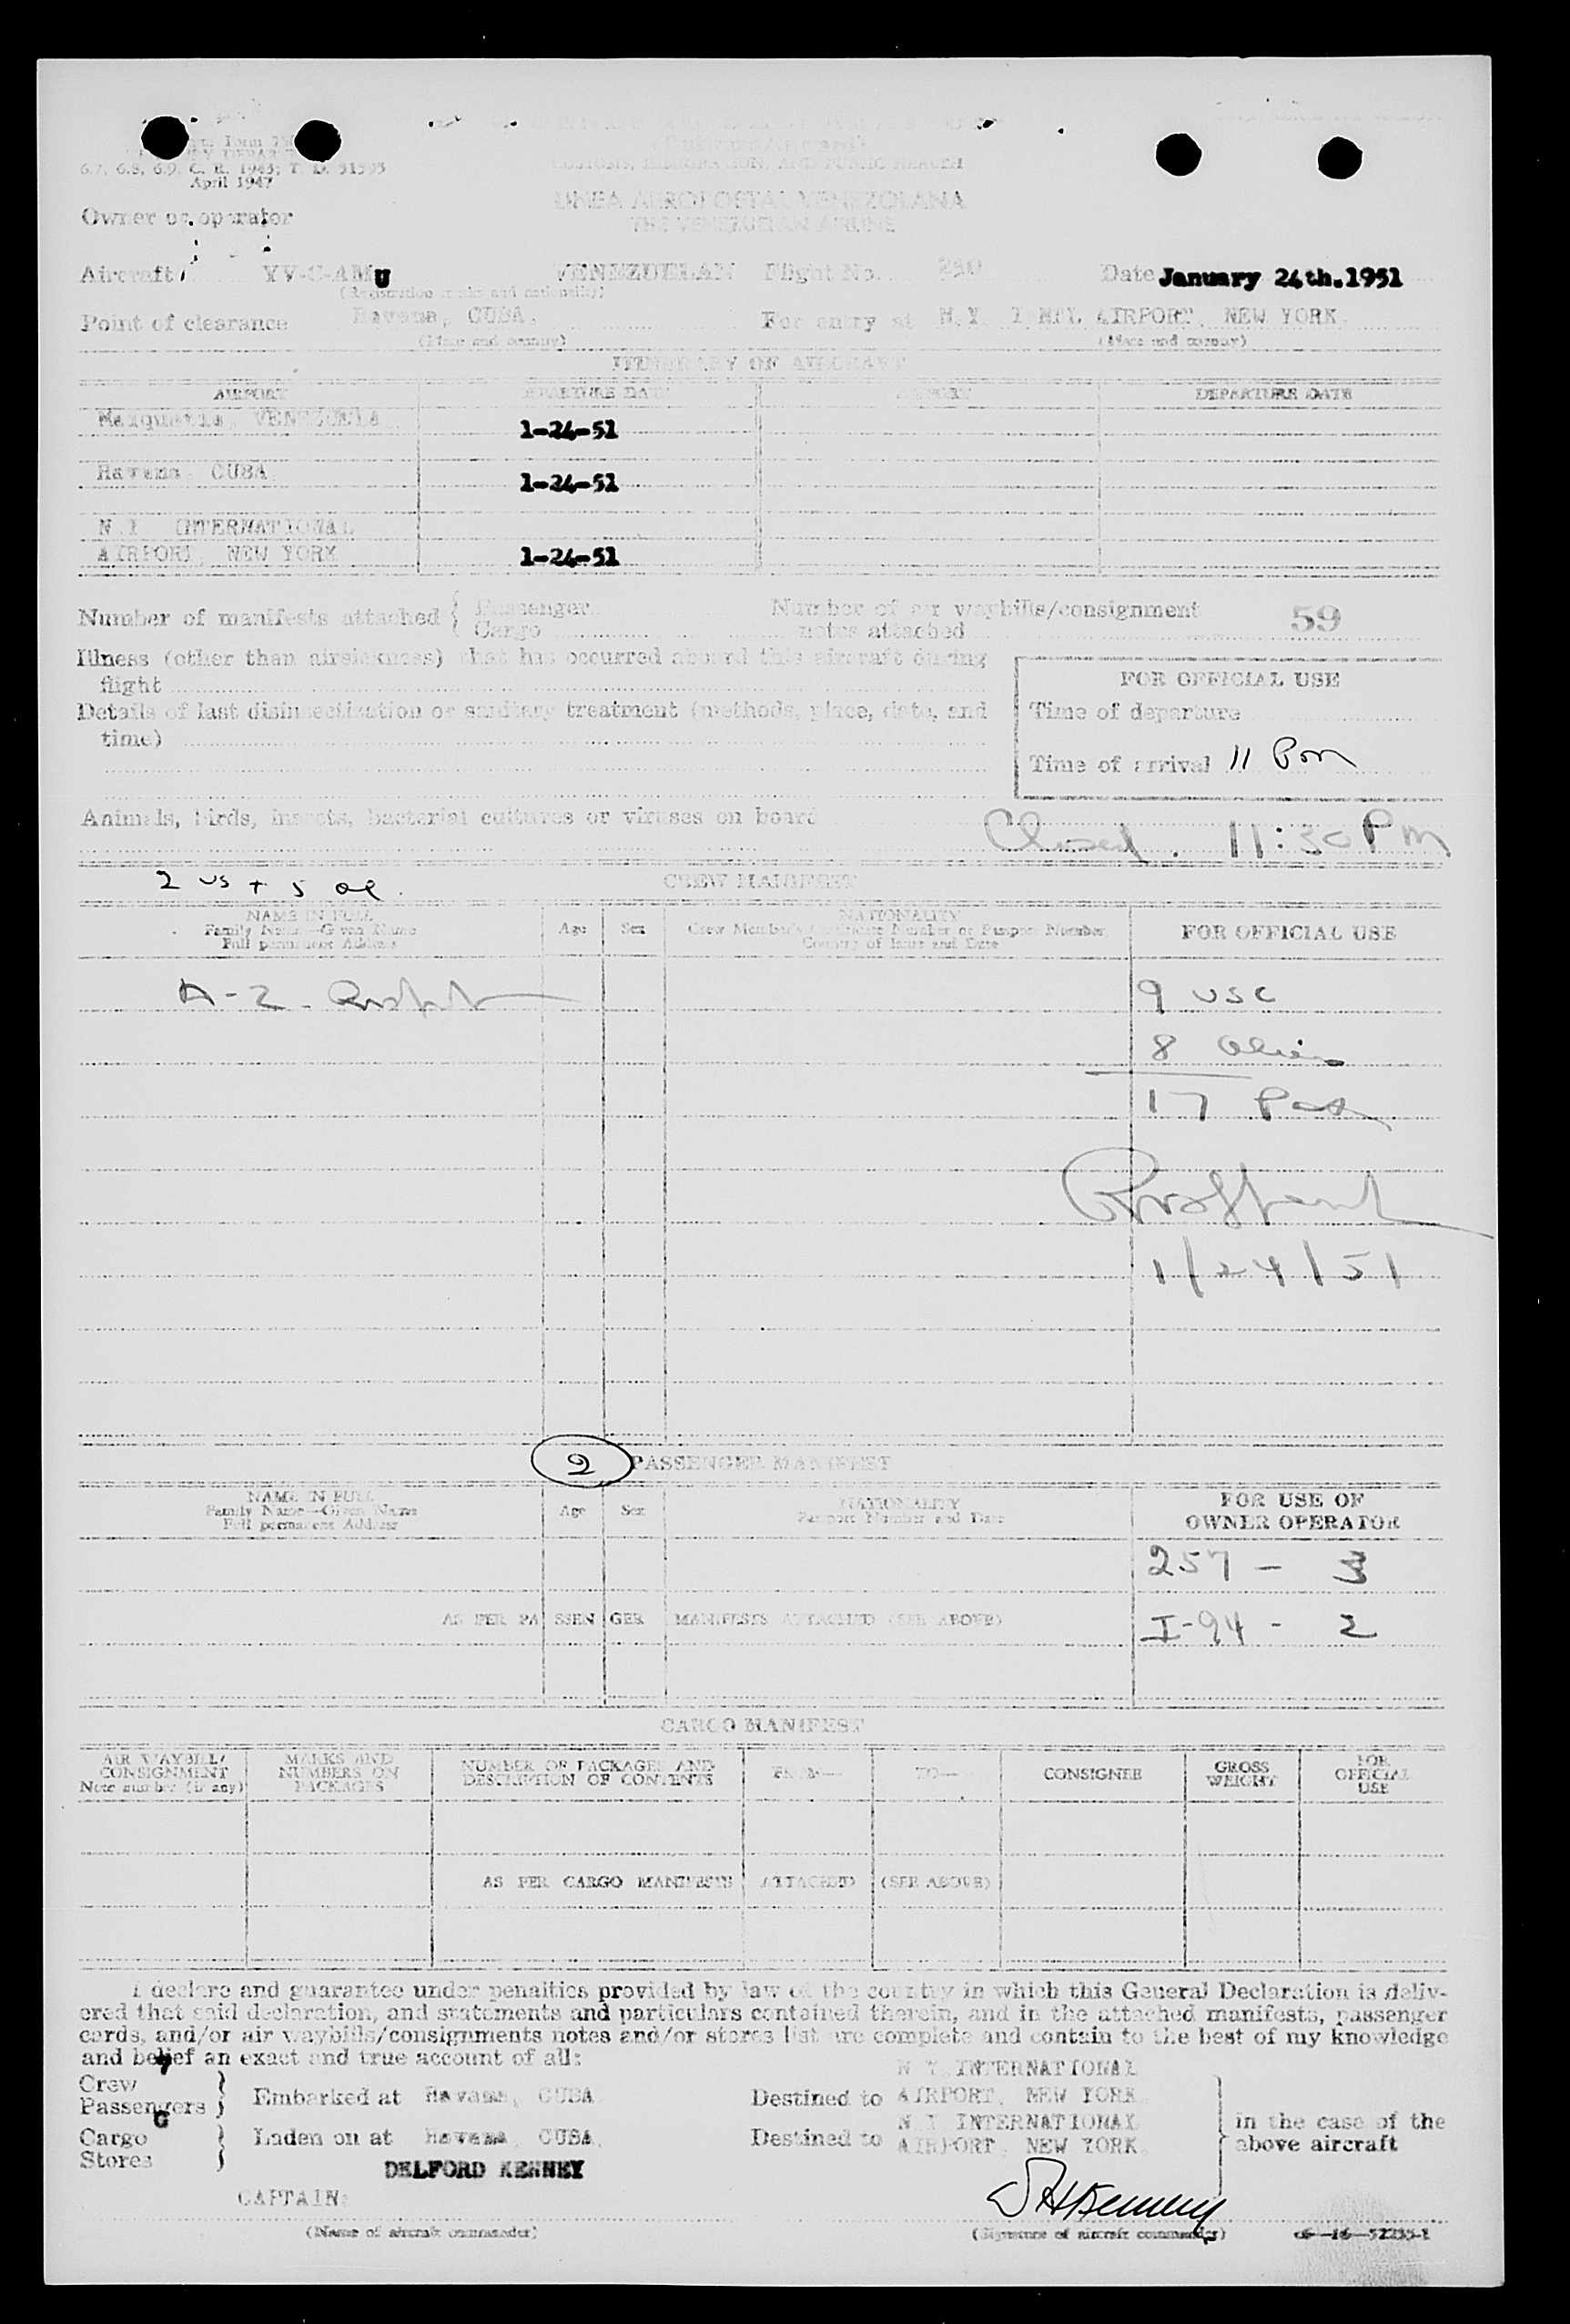 6.7, 6.8, 6.9, C. R. 1943; T. D. 51595
April 1947
CUSTOMS, IMMIGRATION, AND PUBLIC HEALTH
LINEA AEROPOSTAL VENEZOLANA
THE VENEZUELAN AIRLINE
Owner or operator
Aircraft YV-C-AMU VENEZUELAN Flight No. 250 Date January 24th.1951
(Registration marks and nationality)
Point of clearance Havana, CUBA. For entry at N.Y. INTL AIRPORT, NEW YORK
(Place and country) (Place and country)
ITINERARY OF AIRCRAFT
AIRPORT DEPARTURE DATE AIRPORT DEPARTURE DATE
Maiquetia, VENEZUELA 1-24-51
Havana, CUBA 1-24-51
N.Y. INTERNATIONAL
AIRPORT, NEW YORK 1-24-51
Number of manifests attached { Passenger Number of air waybills/consignment 59
Cargo notes attached
Illness (other than airsickness) that has occurred aboard this aircraft during
flight
FOR OFFICIAL USE
Details of last disinsectization or sanitary treatment (methods, place, date, and
time)
Time of departure
Time of arrival 11 Pm
Animals, birds, insects, bacterial cultures or viruses on board
Closed. 11:30 PM
2 US + 5 al.
CREW MANIFEST
NAME IN FULL
Family Name—Given Name
Full permanent Address
Age Sex
NATIONALITY
Crew Member's Certificate Number or Passport Number,
Country of Issue and Date
FOR OFFICIAL USE
A-2-
9 USC
8 Aliens
17 Pass
1/24/51
2 PASSENGER MANIFEST
NAME IN FULL
Family Name—Given Name
Full permanent Address
Age Sex
NATIONALITY
Passport Number and Date
FOR USE OF
OWNER OPERATOR
257 - 3
AS PER PASSENGER MANIFESTS ATTACHED (SEE ABOVE)
I-94 - 2
CARGO MANIFEST
AIR WAYBILL/
CONSIGNMENT
Note number (if any)
MARKS AND
NUMBERS ON
PACKAGES
NUMBER OF PACKAGES AND
DESCRIPTION OF CONTENTS
FROM— TO— CONSIGNEE
GROSS
WEIGHT
FOR
OFFICIAL
USE
AS PER CARGO MANIFESTS ATTACHED (SEE ABOVE)
I declare and guarantee under penalties provided by law of the country in which this General Declaration is deliv-
ered that said declaration, and statements and particulars contained therein, and in the attached manifests, passenger
cards, and/or air waybills/consignments notes and/or stores list are complete and contain to the best of my knowledge
and belief an exact and true account of all:
7
Crew
Passengers } Embarked at Havana, CUBA Destined to N Y INTERNATIONAL AIRPORT, NEW YORK
Cargo
Stores } Laden on at Havana, CUBA. Destined to N Y INTERNATIONAL AIRPORT, NEW YORK
in the case of the
above aircraft
DELFORD KENNEY
CAPTAIN:
(Name of aircraft commander) (Signature of aircraft commander)